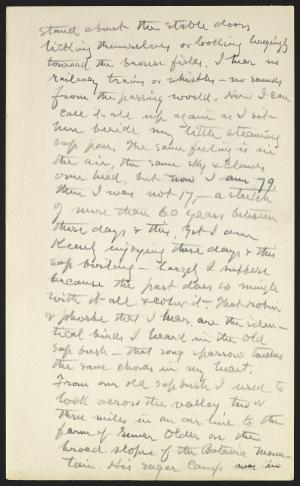 stand about the stable doors
licking themselves or looking longingly
toward the brown fields. I hear no
railway trains or whistles - no sounds
from the passing world. How I can
call it all up again as I sit
here beside my little steaming
sap pans. The same feeling is in
the air, the same sky & clouds
over head, but now I am 79,
then I was not 17, - a stretch
of more than 60 years between
those days & this, Yet I am
keenly enjoying these days & this
sap boiling - largely I suppose
because the past does so mingle
with it all & color it - That robin
& phoebe that I hear are the iden-
tical birds I heard in the old
sap bush - that song sparrow touches
the same chords in my heart.
From our old sap bush I used to
look across the valley two or
three miles in an air line, to the
farm of Older on the
broad slopes of the Batavia moun-
tain. His sugar camp was in